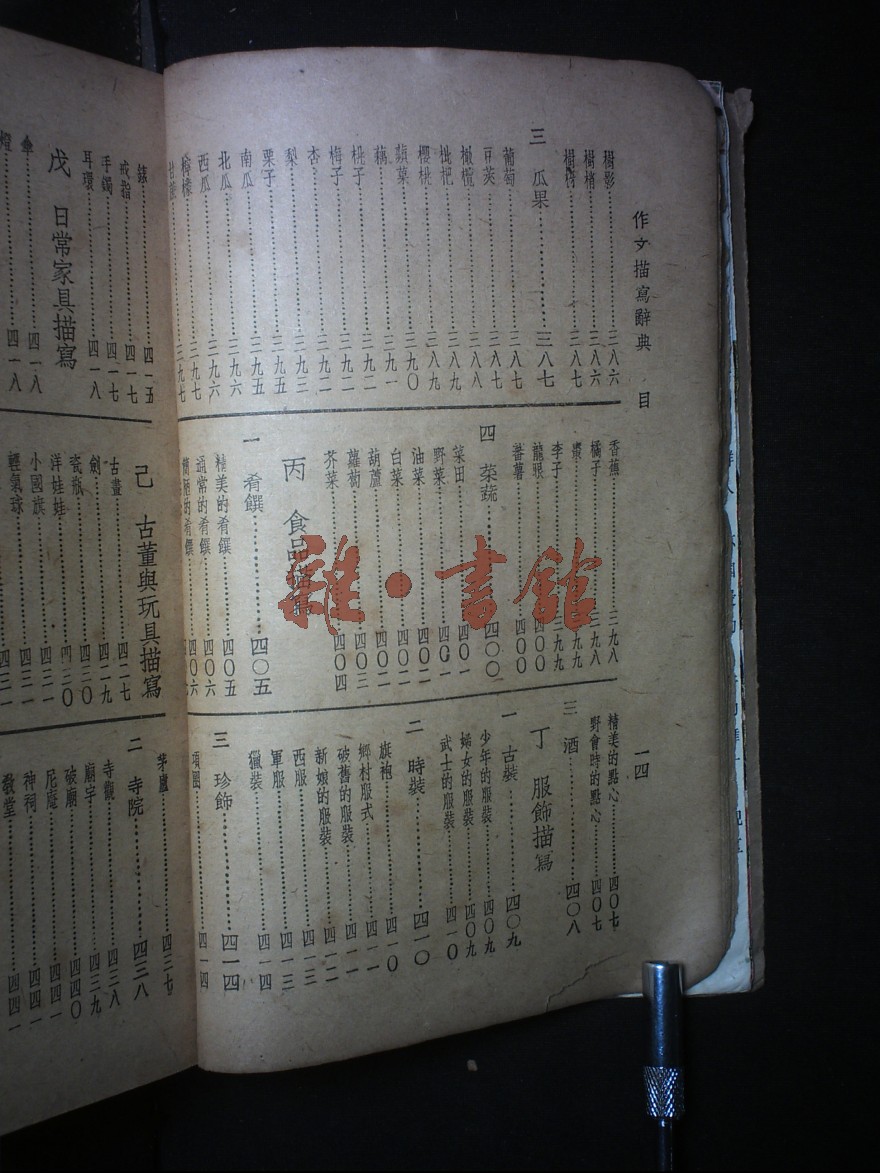 作文描寫辭典 目 一四
樹影……三八六
樹梢……三八六
三 瓜果……三八七
葡萄……三八七
豆莢……三八七
橄欖……三八八
枇杷……三八八
櫻桃……三八九
蘋菓……三九〇
藕……三九一
桃子……三九二
梅子……三九二
杏……三九二
梨……三九三
栗子……三九五
南瓜……三九五
北瓜……三九六
西瓜……三九六
檸檬……三九七
香蕉……三九八
橘子……三九八
棗……三九九
李子……三九九
龍眼……四〇〇
蕃薯……四〇〇
四 菜蔬……四〇〇
菜田……四〇一
野菜……四〇一
油菜……四〇二
白菜……四〇二
葫蘆……四〇二
蘿蔔……四〇三
芥菜……四〇四
丙 食品描寫
一 肴饌……四〇五
精美的肴饌……四〇五
通常的肴饌……四〇六
精美的點心……四〇七
野會時的點心……四〇七
三 酒……四〇八
丁 服飾描寫
一 古裝……四〇九
少年的服裝……四〇九
婦女的服裝……四〇九
武士的服裝……四一〇
二 時裝……四一〇
旗袍……四一〇
鄉村服式……四一一
破舊的服裝……四一一
新娘的服裝……四一二
西服……四一三
軍服……四一三
獵裝……四一四
三 珍飾……四一四
項圈……四一四
錶……四一五
戒指……四一七
手鐲……四一七
耳環……四一八
戊 日常家具描寫
傘……四一八
燈……四一八
己 古董與玩具描寫
古畫……四二七
劍……四二九
瓷瓶……四三〇
洋娃娃……四三〇
小國旗……四三一
輕氣球……四三一
茅廬……四三七
二 寺院……四三八
寺觀……四三八
廟宇……四三九
破廟……四四〇
尼庵……四四一
神祠……四四一
教堂……四四一
雜·書館